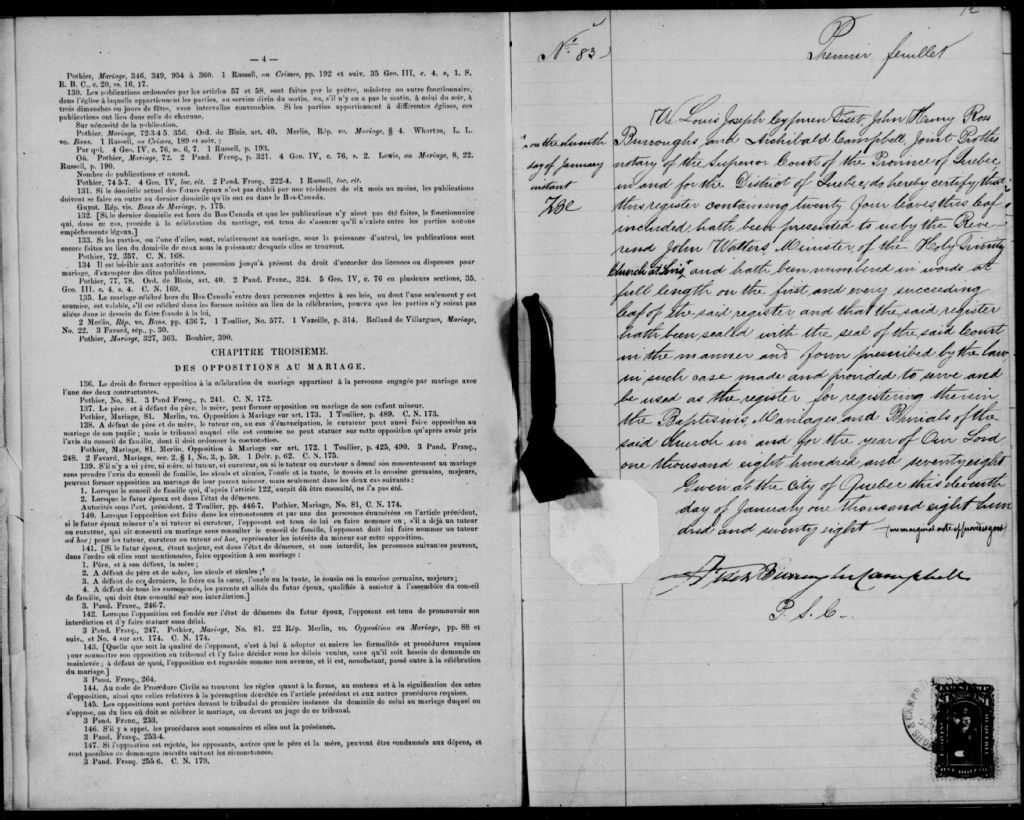 — 4 —
Pothier, Mariage, 346, 349, 954 à 360. 1 Russell, on Crimes, pp. 192 et suiv. 35 Geo. III, c. 4, s, 1. S.
R. B. C., c. 20, ss. 16, 17.
130. Les publications ordonnées par les articles 57 et 58, sont faites par le prêtre, ministre ou autre fonctionnaire,
dans l'église à laquelle appartiennent les parties, au service divin du matin, ou, s'il n'y en a pas le matin, à celui du soir, à
trois dimanches ou jours de fêtes, avec intervalles convenables. Si les parties appartiennent à différentes églises, ces
publications ont lieu dans celle de chacune.
Sur nécessité de la publication.
Pothier, Mariage, 72-3-4-5. 356. Ord. de Blois, art. 40. Merlin, Rép. vo. Mariage, § 4. Wharton, L. L.
vo. Bans. 1 Russell, on Crimes, 189 et suiv. :
Par qui. 4 Geo. IV, c. 76, ss. 6, 7. 1 Russell, p. 193.
Où. Pothier, Mariage, 72. 2 Pand. Franç., p. 321. 4 Geo. IV, c. 76, s. 2. Lewis, on Mariage, 8, 22.
Russell, p. 190.
Nombre de publications et quand.
Pothier, 74 5-7. 4 Geo. IV, loc. cit. 2 Pand. Franç. 222-4. 1 Russell, loc. cit.
131. Si le domicile actuel des futurs époux n'est pas établi par une résidence de six mois au moins, les publications
doivent se faire en outre au dernier domicile qu'ils ont eu dans le Bas-Canada.
Guyot. Rép. vis. Bans de Mariage, p. 175.
132. [Si le dernier domicile est hors du Bas Canada et que les publications n'y aient pas été faites, le fonctionnaire
qui, dans ce cas, procède à la célébration du mariage, est tenu de s'assurer qu'il n'existe entre les parties aucuns
empêchements légaux.]
133. Si les parties, ou l'une d'elles, sont, relativement au mariage, sous la puissance d'autrui, les publications sont
encore faites au lieu du domicile de ceux sous la puissance desquels elles se trouvent.
Pothier, 72, 357. C. N. 168.
134 Il est loisible aux autorités en possession jusqu'à présent du droit d'accorder des licences ou dispenses pour
mariage, d'exempter des dites publications.
Pothier, 77, 78. Ord. de Blois, art. 40. 2 Pand. Franc., 324. 5 Geo. IV, c. 76 en plusieurs sections, 35.
Geo. III. c. 4, s. 4. C. N. 169.
135. Le mariage célébré hors du Bas-Canada entre deux personnes sujettes à ses lois, ou dont l'une seulement y est
soumise, est valable, s'il est célébré dans les formes usitées au lieu de la célébration, pourvu que les parties n'y soient pas
allées dans le dessein de faire fraude à la loi.
2 Merlin, Rép. vo. Bans, pp. 436 7, 1 Toullier, No. 577. 1 Vazeille, p. 314. Rolland de Villargues, Mariage,
No. 22. 3 Favard, rép., p. 39.
Pothier, Mariage, 327, 363. Bouhier, 390.
CHAPITRE TROISIÈME.
DES OPPOSITIONS AU MARIAGE.
136. Le droit de former opposition à la célébration du mariage appartient à la personne engagée par mariage avec
l'une des deux contractantes.
Pothier, No. 81. 3 Pand Franç., p. 241. C. N. 172.
137. Le père, et à défaut du père, la mère, peut former opposition au mariage de son enfant mineur.
Pothier, Mariage, 81. Merlin, vo. Opposition à Mariage sur art. 173. 1 Toullier, p. 489. C. N. 173.
138. A défaut de père et de mère, le tuteur ou, au cas d'émancipation, le curateur peut aussi faire opposition au
mariage de son pupile ; mais le tribunal auquel elle est soumise ne peut statuer sur cette opposition qu'après avoir pris
l'avis du conseil de famille, dont il doit ordonner la convocation.
Pothier, Mariage, 81. Merlin, Opposition à Mariage sur art. 172, 1 Toullier, p. 425, 490. 3 Pand. Franç.,
248. 2 Favard, Mariage, sec. 2. § 1, No. 3, p. 59. 1 Delv. p. 62. C. N. 175.
139. S'il n'y a ni père, ni mère, ni tuteur, ni curateur, ou si le tuteur ou curateur a donné son consentement au mariage
sans prendre l'avis du conseil de famille, les aïeuls et aïeules, l'oncle et la tante, le cousin et la cousine germains, majeurs,
peuvent former opposition au mariage de leur parent mineur, mais seulement dans les deux cas suivants :
1. Lorsque le conseil de famille qui, d'après l'article 122, aurait dû être consulté, ne l'a pas été.
2. Lorsque le futur époux est dans l'état de démence.
Autorités sous l'art. précédent. 2 Toullier, pp. 446-7. Pothier, Mariage, No. 81, C. N. 174.
140. Lorsque opposition est faite dans les circonstances et par une des personnes énumérées en l'article précédent,
si le futur époux mineur n'a ni tuteur ni curateur, l'opposant est tenu de lui en faire nommer un ; s'il a déjà un tuteur
ou curateur, qui ait consenti au mariage sans consulter le conseil de famille, l'opposant doit lui faire nommer un tuteur
ad hoc ; pour les tuteur, curateur ou tuteur ad hoc, représenter les intérêts du mineur sur cette opposition.
141. [Si le futur époux, étant majeur, est dans l'état de démence, et non interdit, les personnes suivantes peuvent,
dans l'ordre où elles sont mentionnées, faire opposition à son mariage :
1. Père, et à son défaut, la mère ;
2. A défaut de père et de mère, les aïeuls et aïeules ;
3. A défaut de ces derniers, le frère ou la sœur, l'oncle ou la tante, le cousin ou la cousine germains, majeurs ;
4. A défaut de tous les susnommés, les parents et alliés du futur époux, qualifiés à assister à l'assemblée du conseil
de famille, qui doit être consulté sur son interdiction.]
3. Pand. Franc., 246-7.
142. Lorsque l'opposition est fondée sur l'état de démence du futur époux, l'opposant est tenu de promouvoir son
interdiction et d'y faire statuer sans délai.
3 Pand. Franç., 247. Pothier, Mariage, No. 81. 22 Rép. Merlin, vo. Opposition au Mariage, pp. 88 et
suiv., et No. 4 sur art. 174. C. N. 174.
143. [Quelle que soit la qualité de l'opposant, c'est à lui à adopter et suivre les formalités et procédures requises
pour soumettre son opposition au tribunal et l'y faire décider sous les délais voulus, sans qu'il soit besoin de demande en
mainlevée ; à défaut de quoi, l'opposition est regardée comme non avenue, et il est, nonobstant, passé outre à la célébration
du mariage.]
3 Pand. Franç., 264.
144. Au code de Procédure Civile se trouvent les règles quant à la forme, au contenu et à la signification des actes
d'opposition, ainsi que celles relatives à la péremption décrétée en l'article précédent et aux autres procédures requises.
145. Les oppositions sont portées devant le tribunal de première instance du domicile de celui au mariage duquel on
s'oppose, ou du lieu où doit se célébrer le mariage, ou devant un juge de ce tribunal.
3 Pand. Franc., 253.
146. S'il y a appel, les procédures sont sommaires et elles ont la préséance.
3 Pand. Franç., 253-4.
147. Si l'opposition est rejetée, les opposants, autres que le père et la mère, peuvent être condamnés aux dépens, et
sont passibles de dommages intérêts suivant les circonstances.
3 Pand. Franç. 255 6. C. N. 179.
12
No. 83
Premier feuillet
We Louis Joseph Cyprien Fiset, John Henry Ross
Burroughs and Archibald Campbell, Joint Protho
notary of the Superior Court of the Province of Quebec
in and for the District of Quebec, do hereby certify that
on the eleventh
day of January
instant
this register containing twenty four leaves this leaf
included hath been presented to us by the Reve-
rend John Walters Minister of the Holy Trinity
Church at Levis and hath been numbered in words at
full length on the first and every succeeding
leaf of the said register and that the said register
hath been sealed with the seal of the said Court
in the manner and form prescribed by the law
in such case made and provided to serve and
be used as the register for registering therein
the Baptisms, Marriages and Burials of the
said Church in and for the year of Our Lord
one thousand eight hundred and seventy eight
Given at the City of Quebec this eleventh
day of January one thousand eight hun
dred and seventy eight (one marginal note approved good)
Fiset Burroughs Campbell
P. S. C.
LAW STAMP
ONE DOLLAR